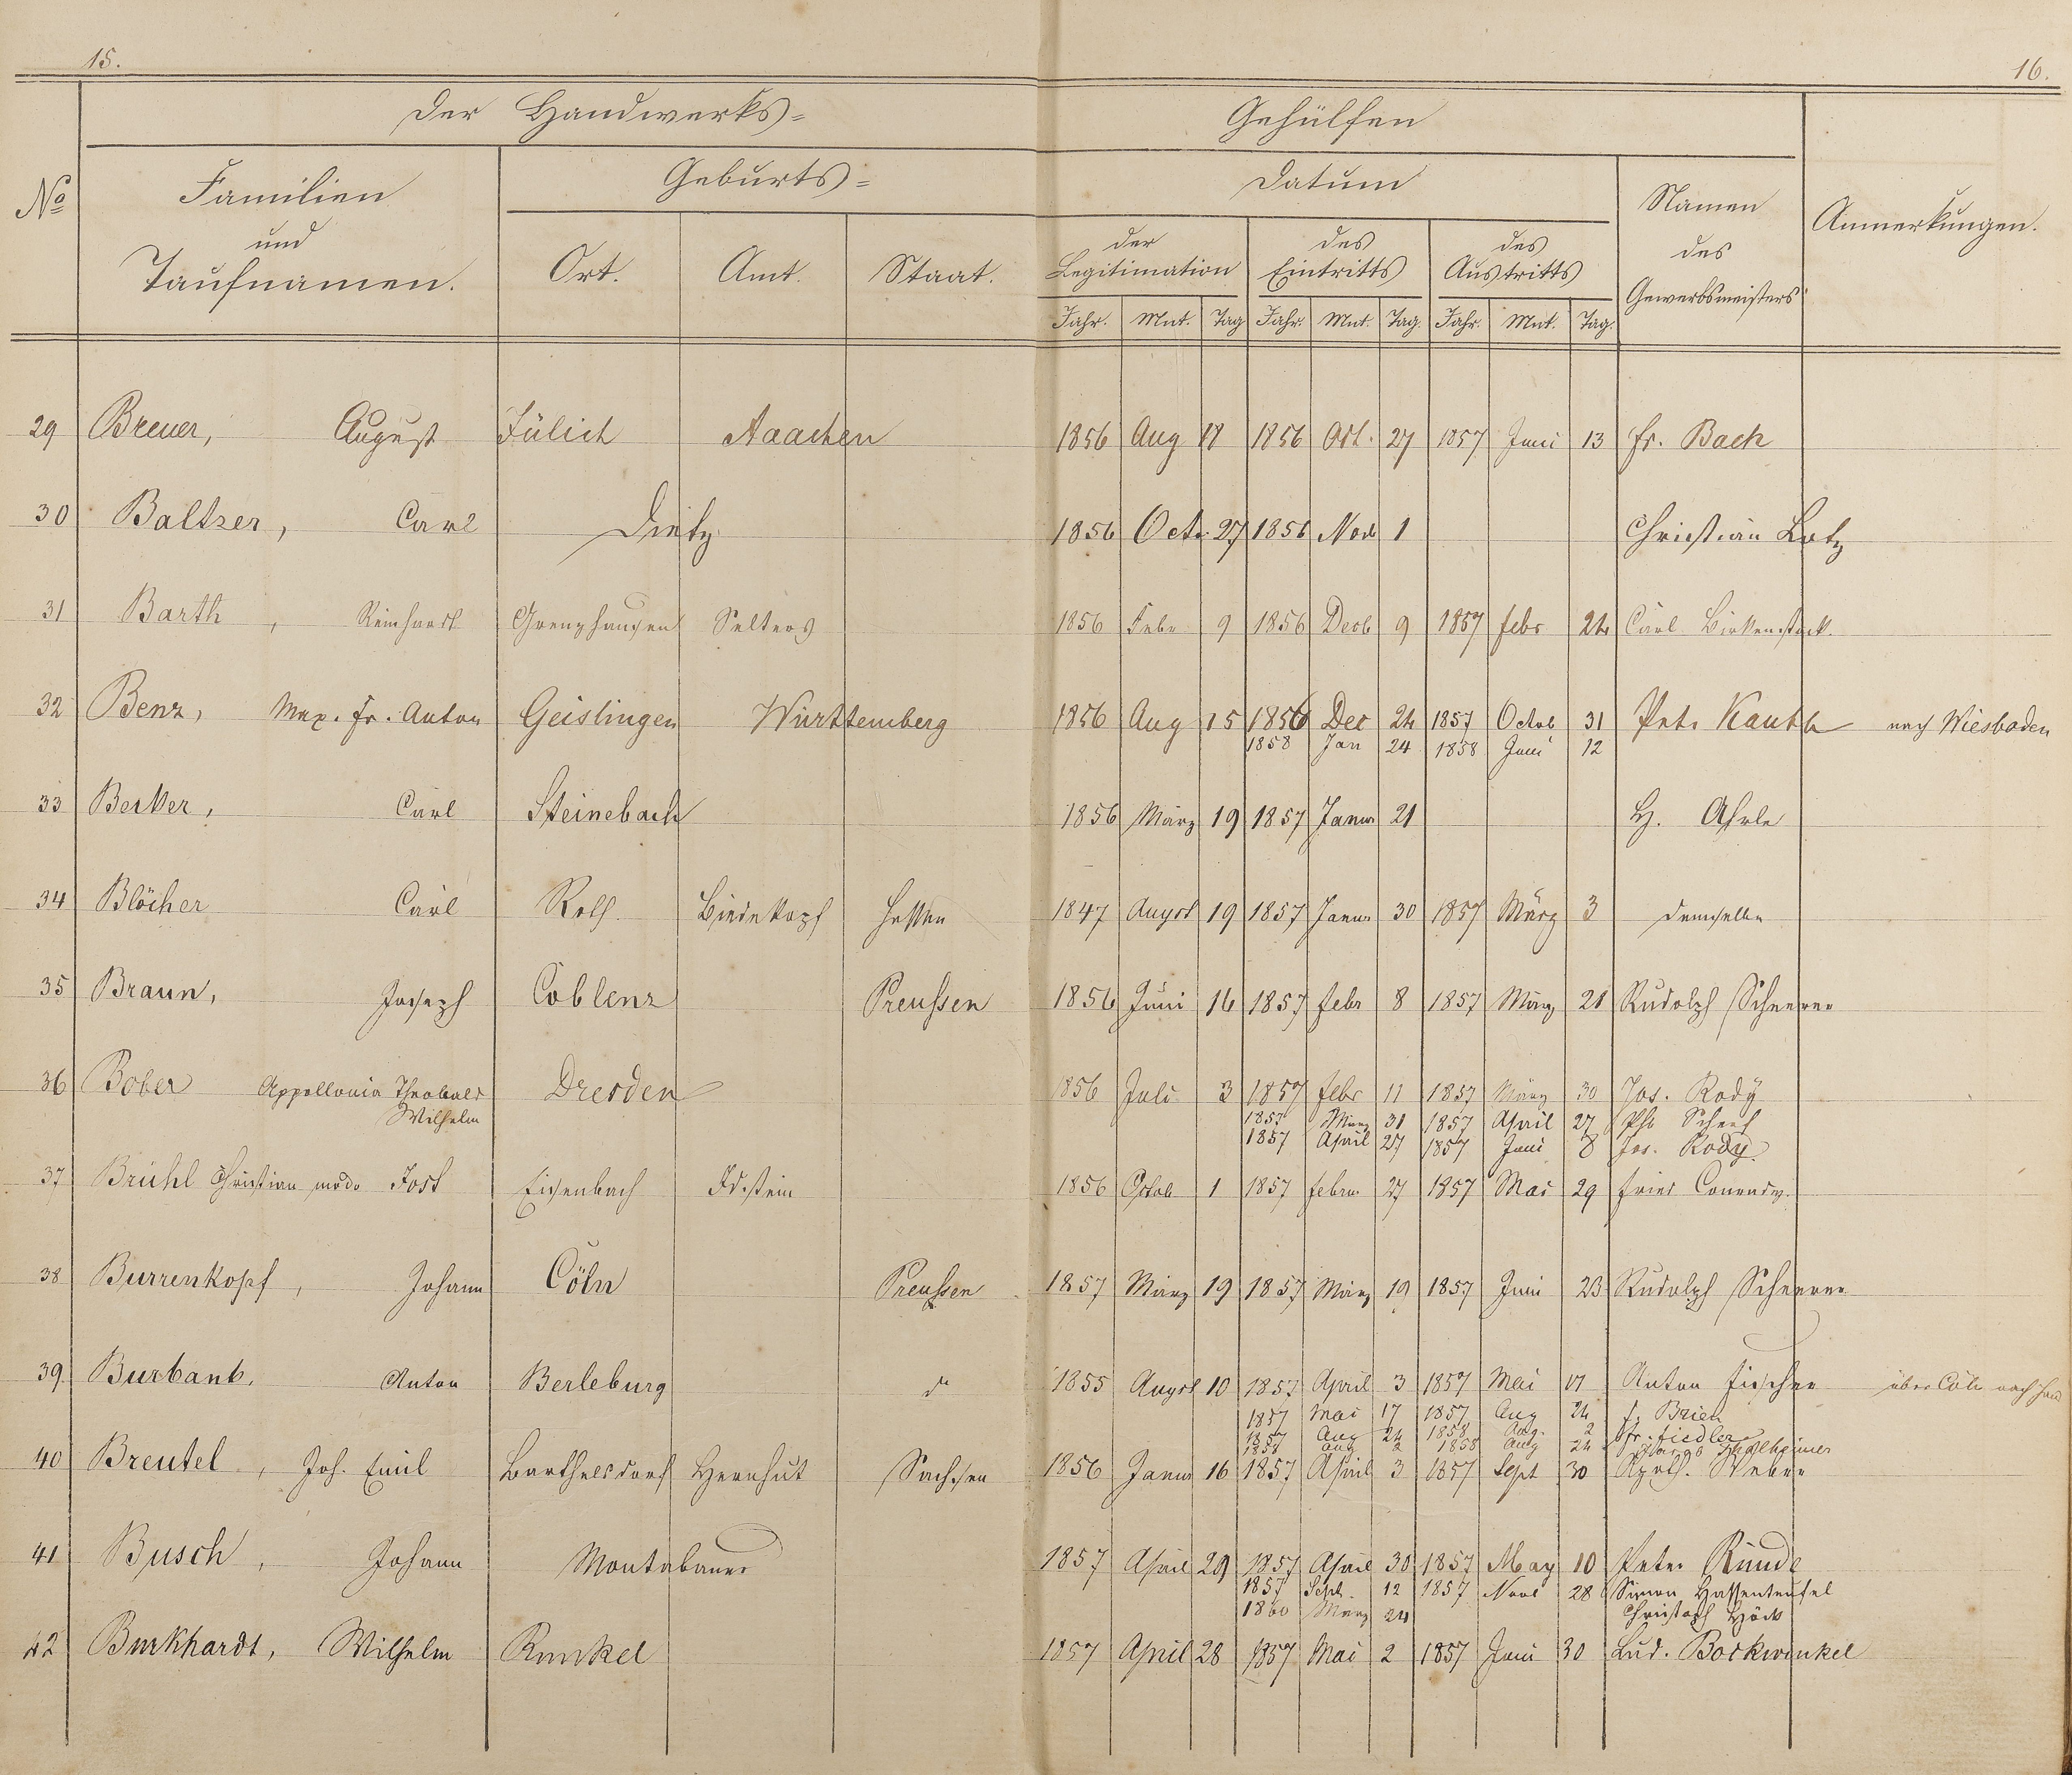 15.
16.
Der Handwerks= Gehülfen
No
Familien und Taufnamen.
Geburts=
Ort. Amt. Staat.
Datum
der Legitimation des Eintritts des Austritts
Jahr. Mnt. Tag Jahr. Mnt. Tag. Jahr. Mnt. Tag.
Namen des Gewerbsmeisters
Anmerkungen.
29 Breuer, August Jülich Aachen 1856 Aug 18 1856 Oct. 27 1857 Juni 13 Fr. Bach
30 Baltzer, Carl Dietz 1856 Octr 27 1856 Nov 1 Christian Lotz
31 Barth, Reinhardt Grenzhausen Selters 1856 Febr 9 1856 Decb 9 1857 Febr 24 Carl Birkenstock.
32 Benz, Max. Fr. Anton Geislingen Württemberg 1856 Aug 15 1856 Dec 24 1857 Octob 31 Petr Kauth nach Wiesbaden
1858 Jan 24 1858 Juni 12
33 Becker, Carl Steinebach 1856 März 19 1857 Janur 21 H. Ahrle
34 Blöcher Carl Roth. Biedenkopf Hessen 1847 August 19 1857 Janur 30 1857 März 3 Demselben
35 Braun, Joseph Coblenz Preussen 1856 Juni 16 1857 Febr 8 1857 März 21 Rudolph Scheerer
36 Bober Appollonia Theobald Dresden 1856 Juli 3 1857 Febr 11 1857 März 30 Jos. Rody
Wilhelm 1857 März 31 1857 April 27 Ph. Scherf
1857 April 27 1857 Juni 8 Jos. Rody
37 Brühl Christian modo Jost Eisenbach Idstein 1856 Octob 1 1857 Februr 27 1857 Mai 29 Fried
38 Burrenkopf, Johann Cöln Preussen 1857 März 19 1857 März 19 1857 Juni 23 Rudolph Scheerer
39 Burbank. Anton Berleburg do 1855 August 10 1857 April 3 1857 Mai 17 Anton Fischer über Cöln nach
1857 Mai 17 1857 Aug 24 F. Brien
1857 Aug 24 1858 Aug. 2 Fr. Fiedler
1858 Aug 2 1858 Aug 24
40 Breutel, Joh. Emil Barthelsdorf Hernhut Sachsen 1856 Janur 16 1857 April 3 1857 Sept 30 Apoth. Weber
41 Busch, Johann Montabaur 1857 April 29 1857 April 30 1857 May 10 Peter Runde
1857 Sept. 12 1857 Novb 28 Simon Hassenteufel
1860 März 24 Christoph Höck
42 Burkhardt, Wilhelm Runkel 1857 April 28 1857 Mai 2 1857 Juni 30 Lud. Bockwinkel